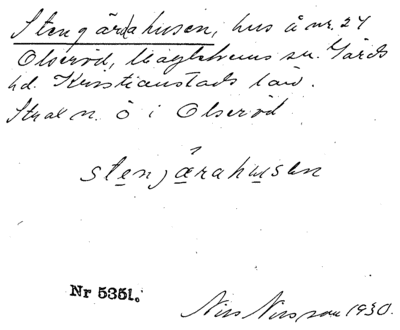 Stengårdahusen, hus å nr. 24
Olseröd, Maglehems sn. Gärds
hd. Kristianstads län.
Strax n. ö i Olseröd
stenjårahusen
Nr 5351.
Nils Nilsson 1930.